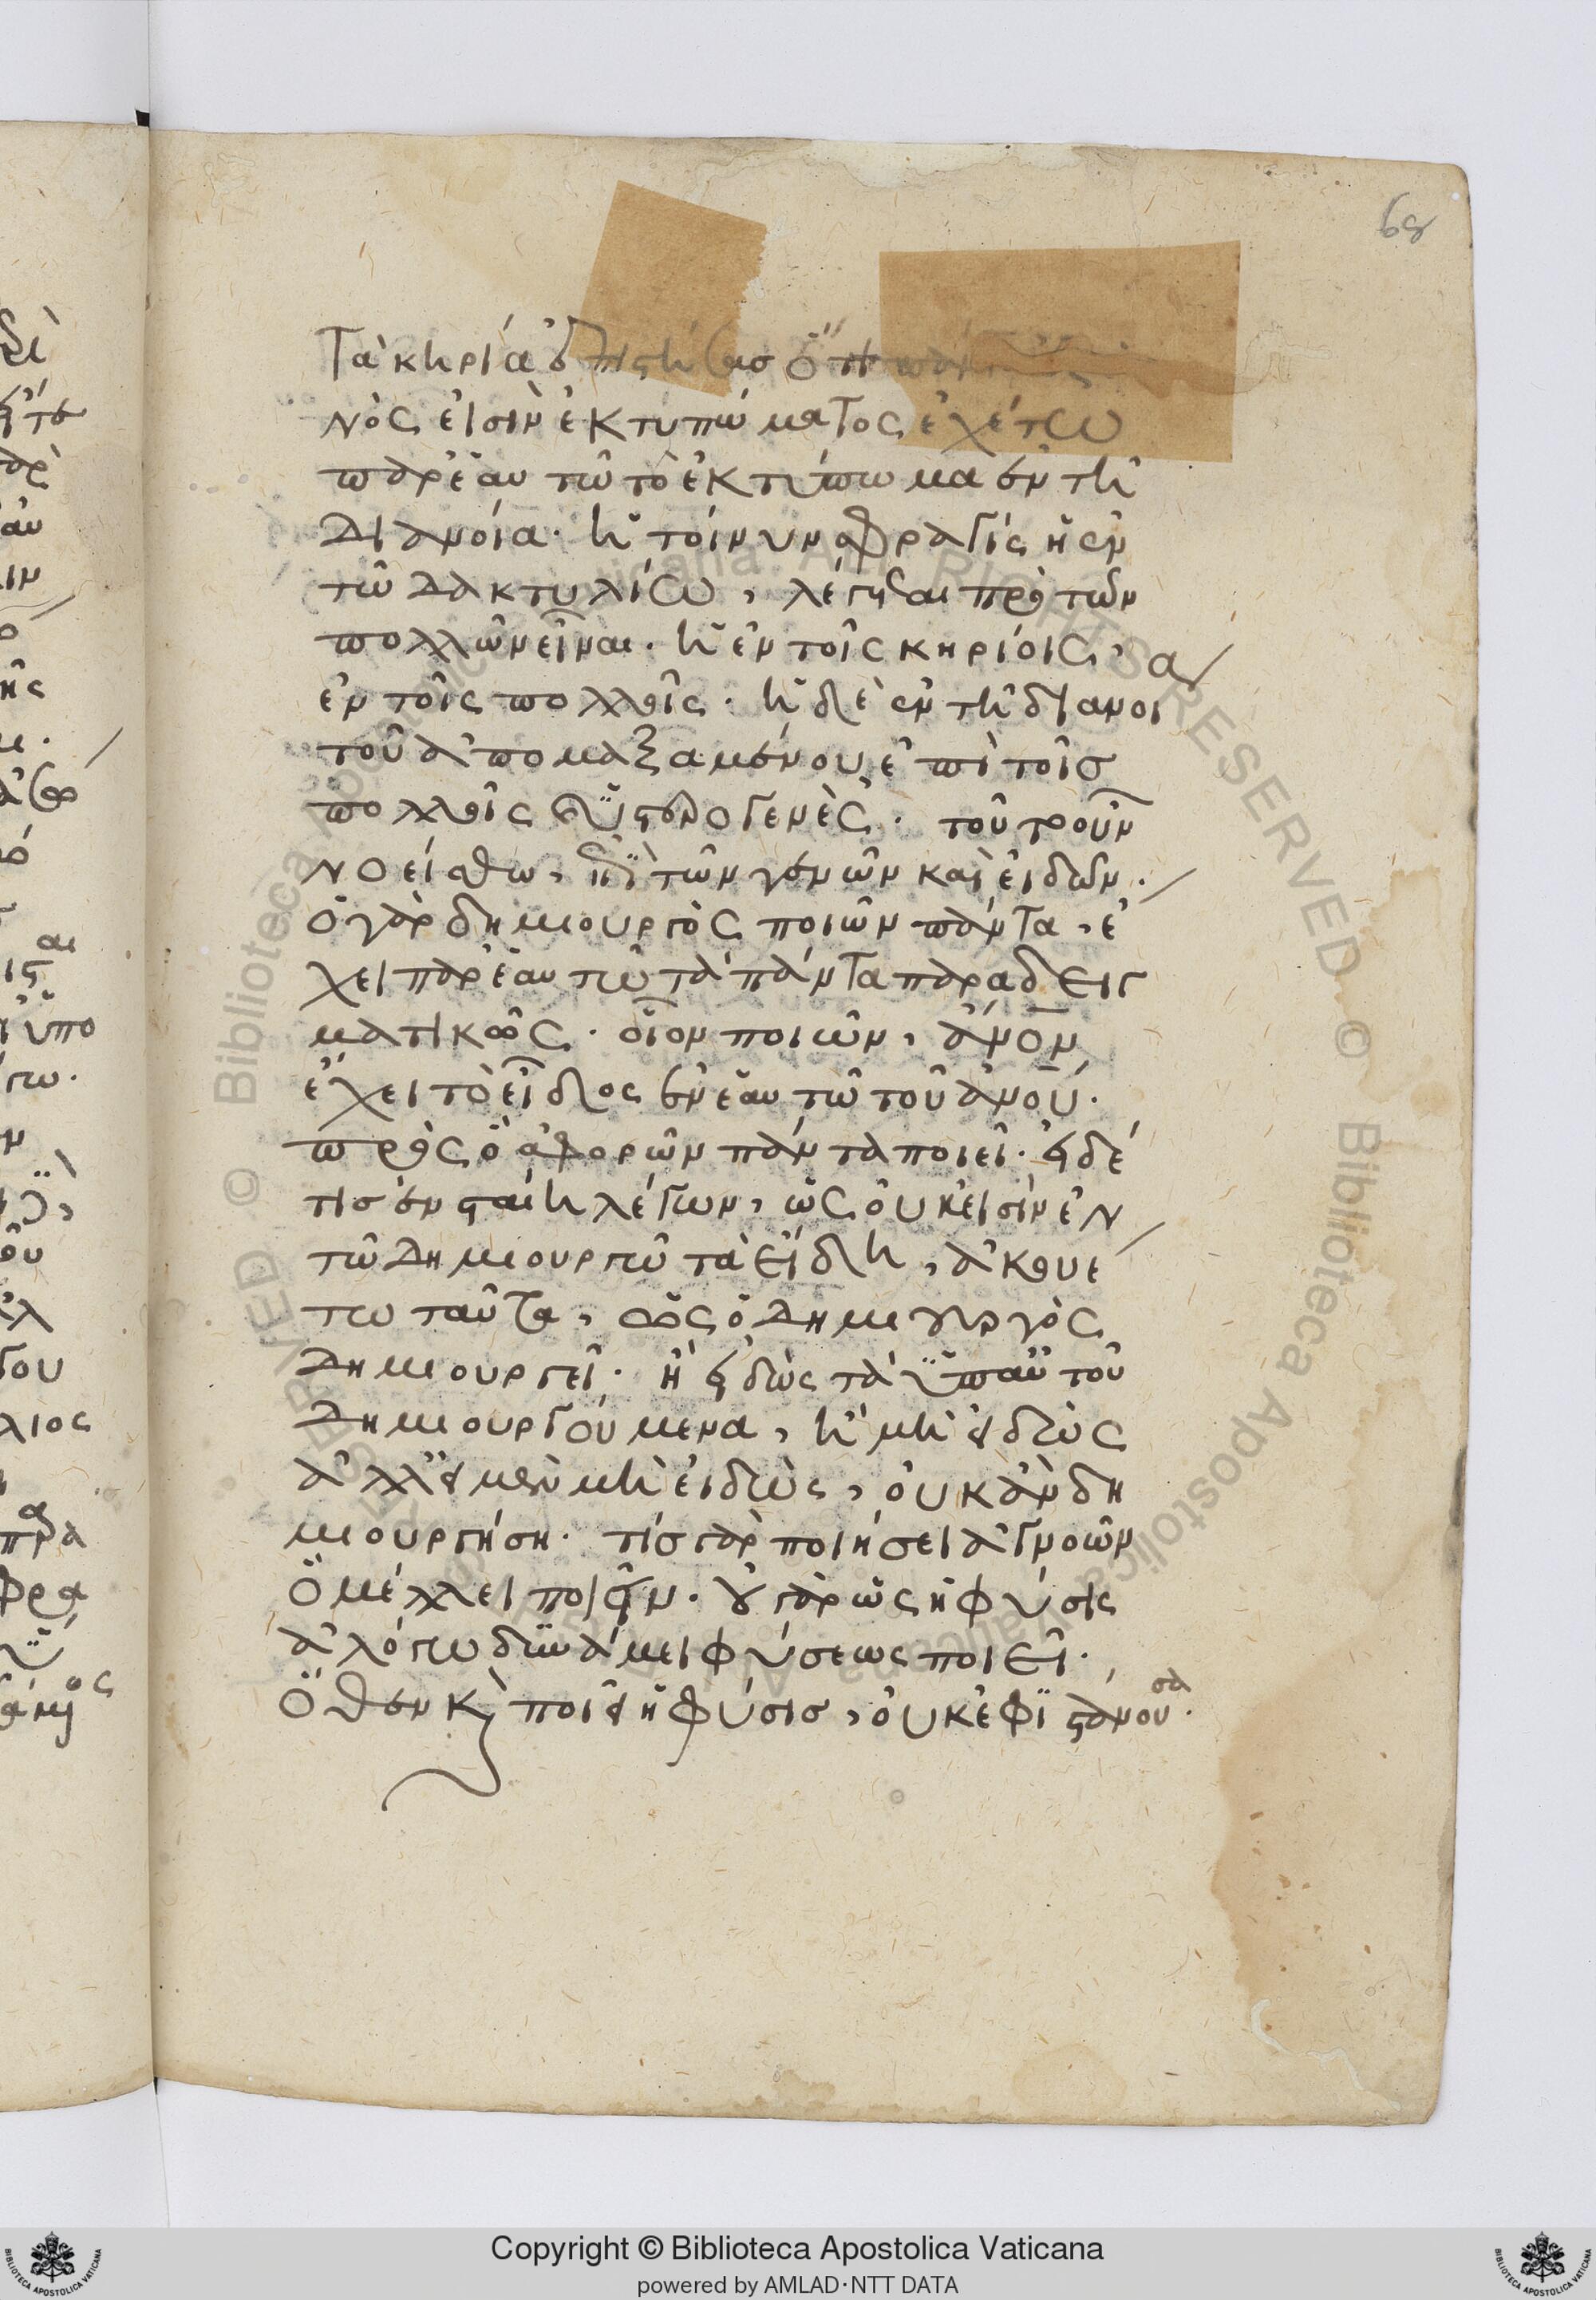 68
τὰ κηρία ἐπιστήσας ὅτι πάντα
νὸς εἰσὶν ἐκτυπώματος ἐχέτω
παρ' ἑαυτῶ τὸ ἐκτύπωμα ἐν τῆ
διανοία. ἡ τοίνυν σφραγὶς ἡ ἐν
τῶ δακτυλίω, λέγεται πρὸ τῶν
πολλῶν εἶναι. ἡ ἐν τοῖς κηρίοις,
ἐν τοῖς πολλοῖς. ἡ δὲ ἐν τῆ διανοία
τοῦ ἀπομαξαμένου, ἐπὶ τοῖς
πολλοῖς καὶ ὑστερογενὲς. τοῦτο οὖν
νοείσθω, ἐπὶ τῶν γενῶν καὶ εἰδῶν.
ὁ γὰρ δημιουργὸς ποιῶν πάντα, ἔ
χει παρ' ἑαυτῶ τὰ πάντα παραδειγ
ματικῶς. οἷον ποιῶν, ἄνον
ἔχει τὸ εἶδος ἐν ἑαυτῶ τοῦ ἀνου.
πρὸς ὃ ἀφορῶν πάντα ποιεῖ. εἰ δέ
τις ἐνσταίη λέγων, ὡς οὐκ εἰσὶν ἐν
τῶ δημιουργῶ τὰ εἴδη, ἀκουέ
τω ταῦτα, ὡς ὁ δημιουργὸς
δημιουργεῖ. ἢ εἰδὼς τὰ ὑπ' αὐτοῦ
δημιουργούμενα, ἢ μὴ εἰδὼς
ἀλλ' εἰ μὲν μὴ εἰδὼς, οὐκ ἂν δη
μιουργήση. τίς γὰρ ποιήσει ἀγνοῶν
ὃ μέλλει ποιεῖν. οὐ γὰρ ὡς ἡ φύσις
ἀλόγω δυνάμει φύσεως ποιεῖ.
ὅθεν καὶ ποιεῖ ἡ φύσις, οὐκ ἐφιστάνουσα.
Copyright © Biblioteca Apostolica Vaticana
powered by AMLAD·NTT DATA